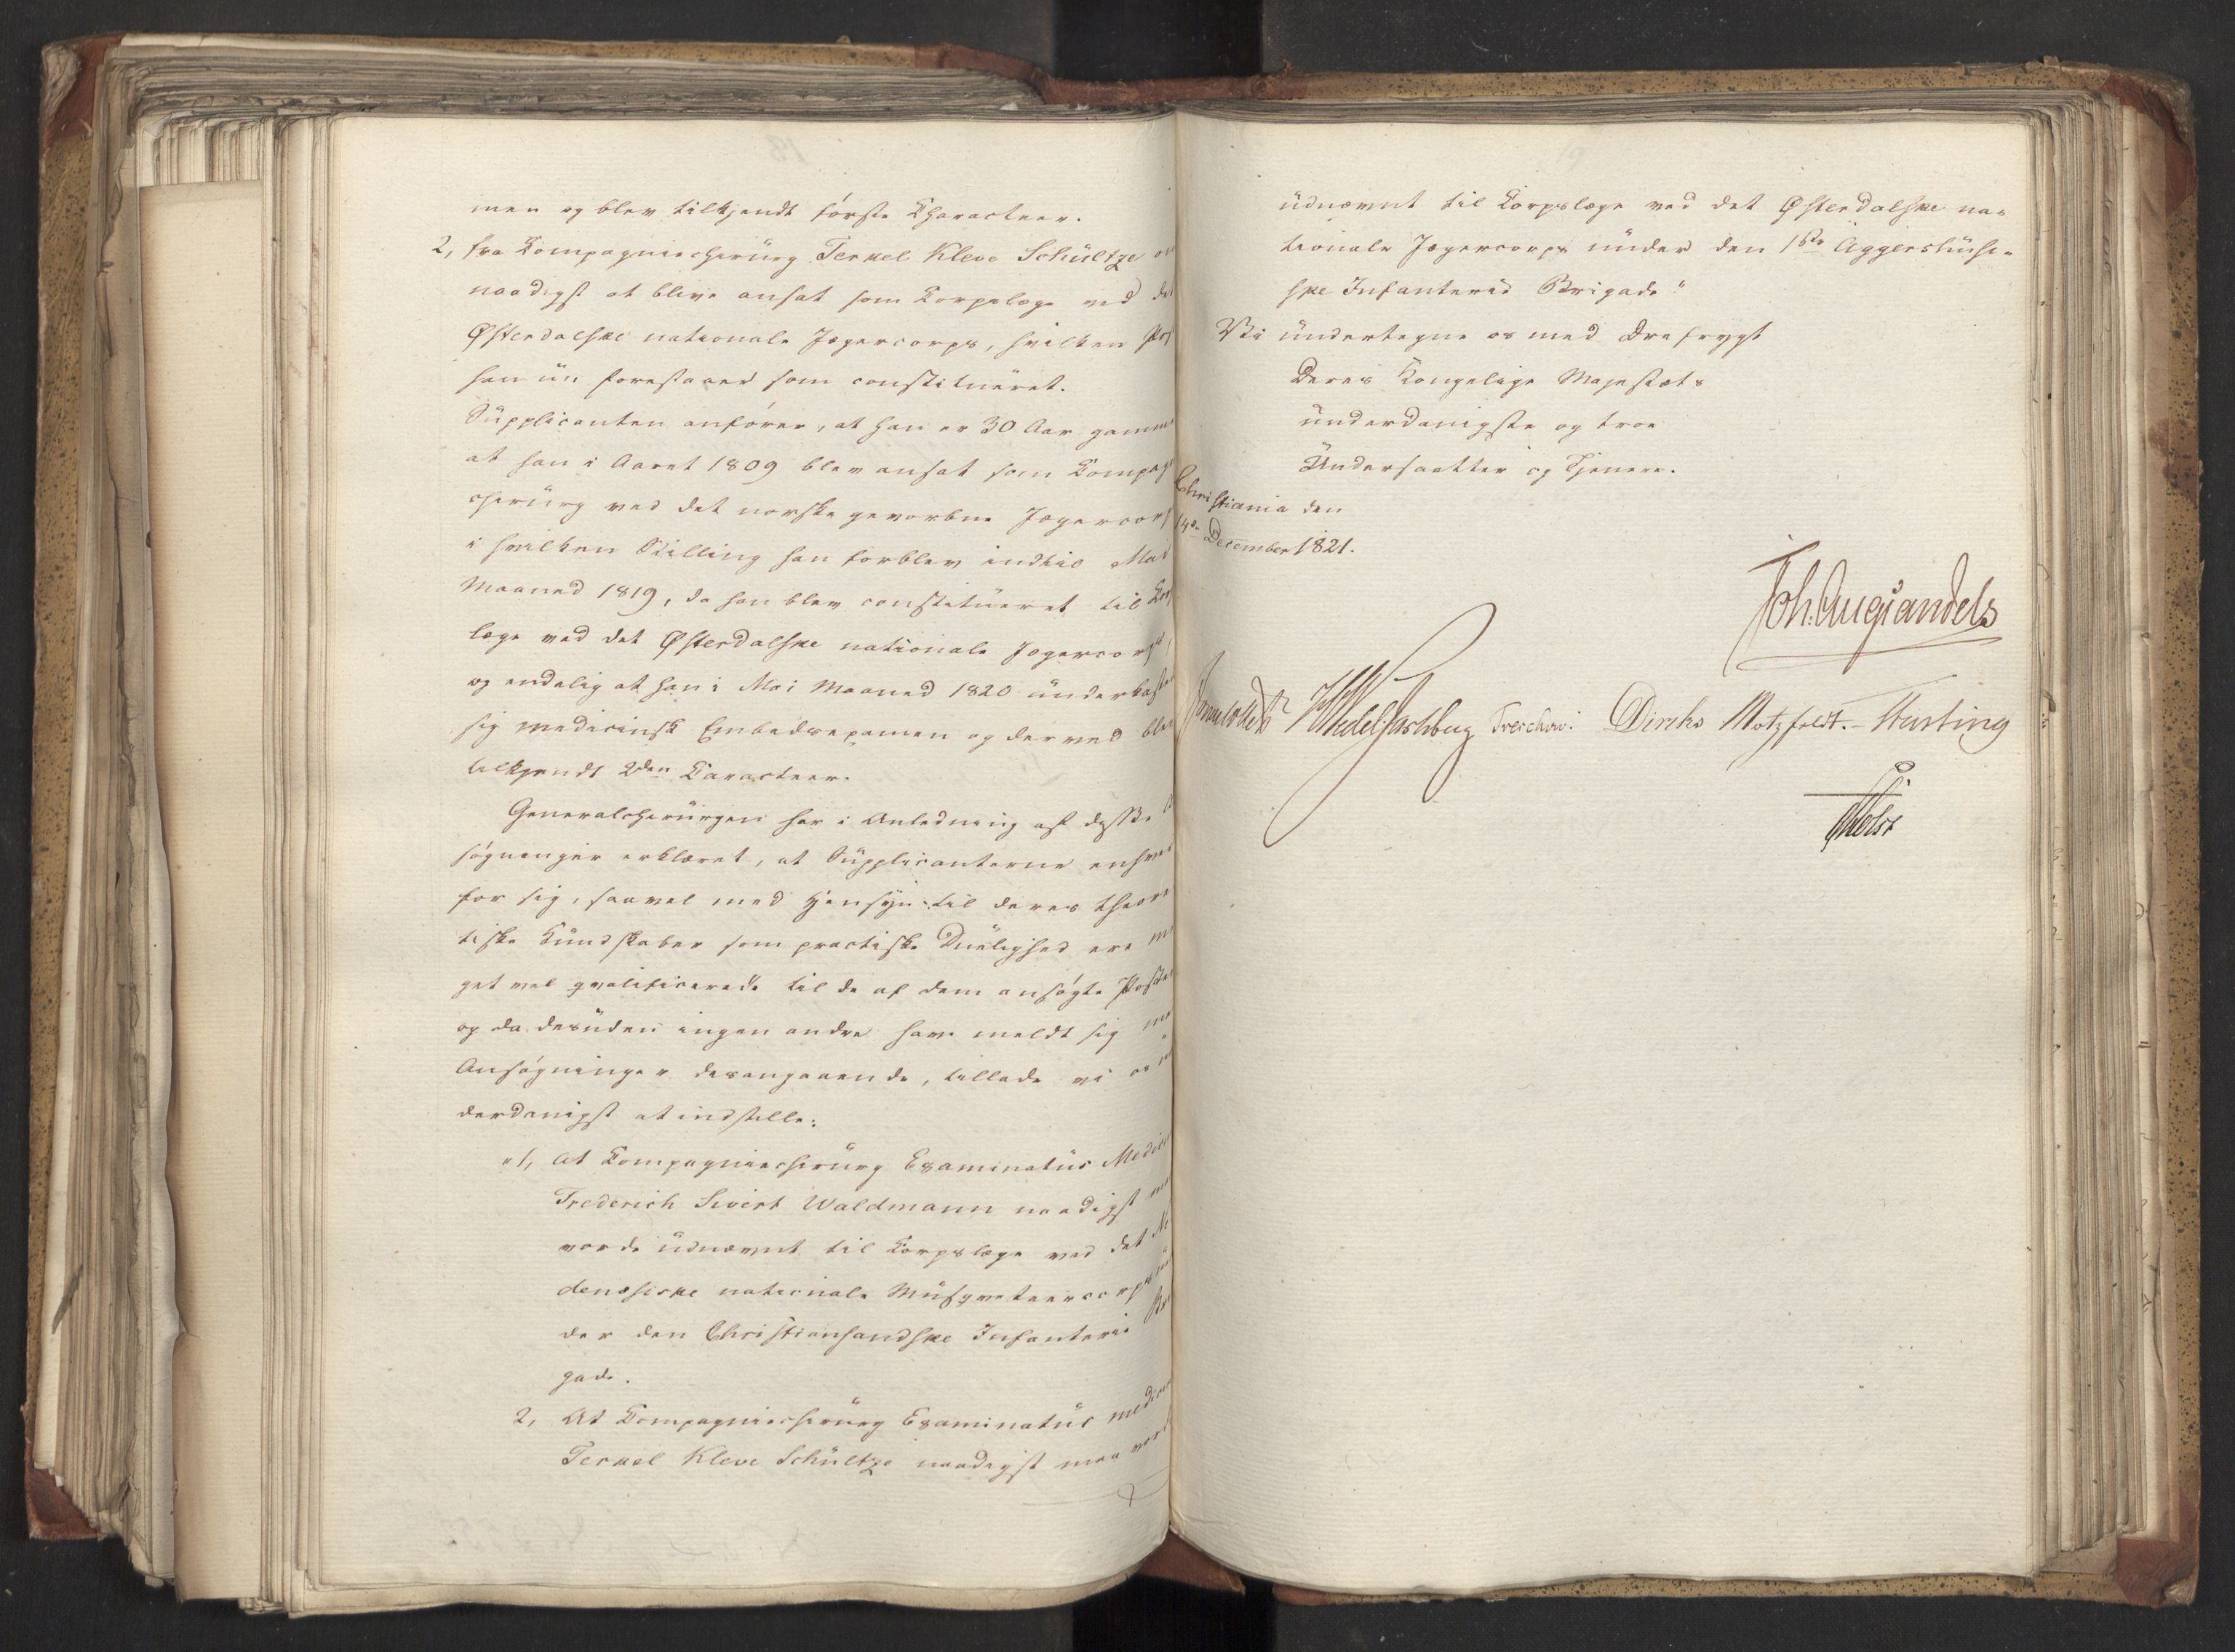 men og blev tilkjendt første Characteer.
2, fra Compagniechirurg Terkel Kleve Schültze om
naadigst at blive ansat som Corpslæge ved det
Østerdalske nationale Jægercorps, hvilken Post
han nu forestaaer som constitueret.
Supplicanten anfører, at han er 30 Aar gammel
at han i Aaret 1809 blev ansat som Compagnie
chirurg ved det norske gevorbne Jægercorps
i hvilken Stilling han forblev indtil Mai
Maaned 1819, da han blev constitueret til Corps
læge ved det Østerdalske nationale Jægercorps,
og endelig at han i Mai Maaned 1820 underkastede
sig medicinsk Embedsexamen og derved blev
tilkjendt 2den Caracteer.
Generalchirurgen har i Anledning af disse An
søgninger erklæret, at Supplicanterne enhver
for sig, saavel med Hensyn til deres theore
tiske Kundskaber som practiske Duelighed ere me
get vel qvalificerede til de af dem ansøgte Poster
og da desuden ingen andre have meldt sig med
Ansøgninger desangaaende, tillade vi os un
derdanigst at indstille:
"1, At Compagniechirurg Examinatus Medicinæ
Frederich Sivert Waldmann naadigst maa
vorde udnævnt til Corpslæge ved det Ne
denæsiske nationale Musqveteercorps un
der den Christiansandske Infanterie Bri
gade.
2, At Compagniechirurg Examinatus medicinæ
Terkel Kleve Schültze naadigst maa vorde
udnævnt til Corpslæge ved det Østerdalske na=
tionale Jægercorps under den 1ste Aggershusi=
ske Infanterie Brigade"
Vi undertegne os med Ærefrygt
Deres Kongelige Majestæts
underdanigste og troe
Undersaatter og Tjenere.
Christiania den
14de December 1821.
Joh: Aug: Sandels
Sommerhielm HWedel Jarlsberg Treschow. Diriks Motzfeldt. - Hasting
Holst